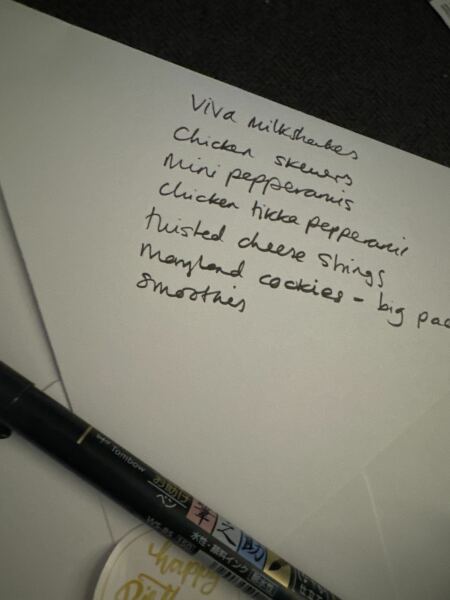 Viva Milkshakes
Chicken skewers
Mini pepperamis
Chicken tikka pepperami
twisted cheese strings
Maryland cookies - big pac
smoothies
Tombow
お助けう
ペン
筆之助
WS-BS 150
水性・顔料インク
happy